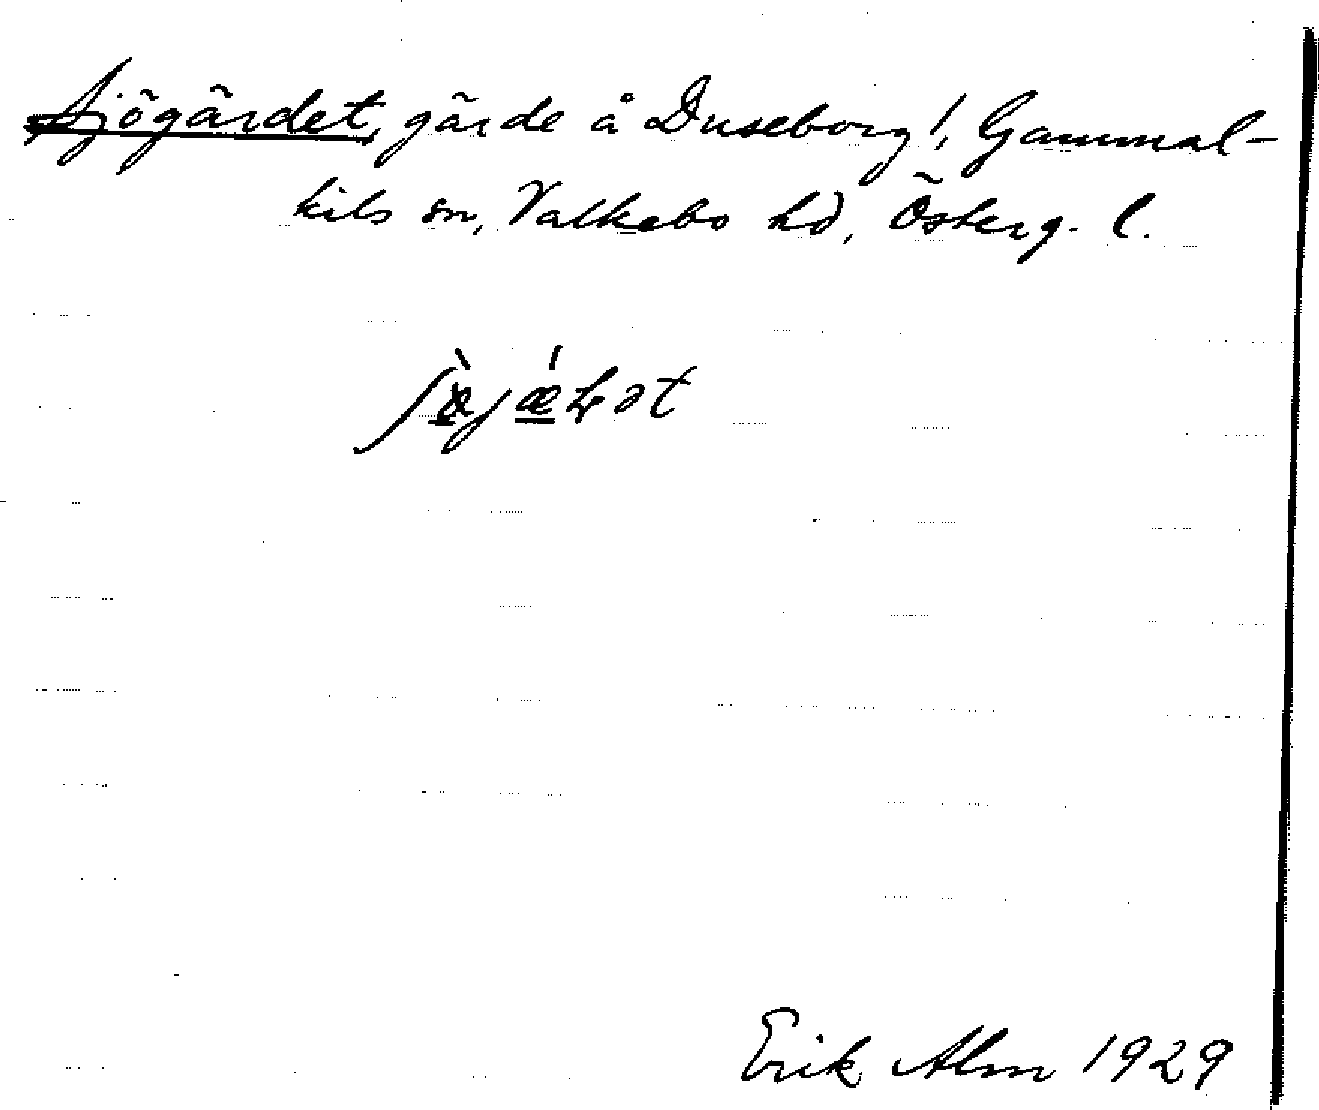 Sjögärdet, gärde å Duseborg!, Gammal-
kils sn, Valkebo hd, Österg. l.
Erik Alm 1929